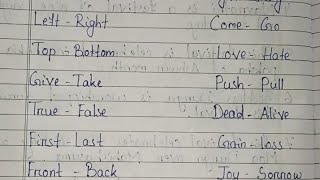 Left - Right Come - Go
Top - Bottom Love - Hate
Give - Take Push - Pull
True - False Dead - Alive
First - Last Gain - loss
Front - Back Joy - Sorrow